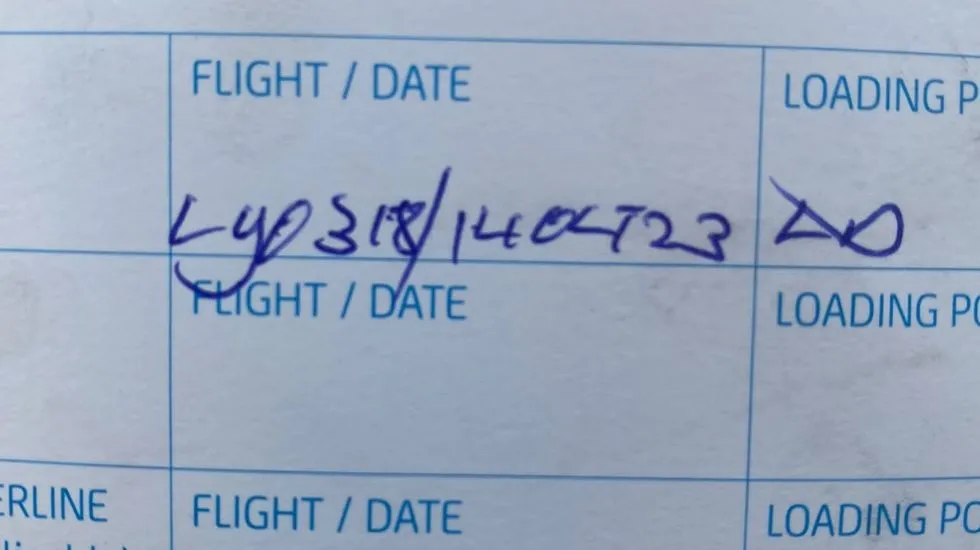 FLIGHT / DATE
LOADING P
LY0318/14OCT23
FLIGHT / DATE
LOADING PO
ERLINE
FLIGHT / DATE
LOADING PO